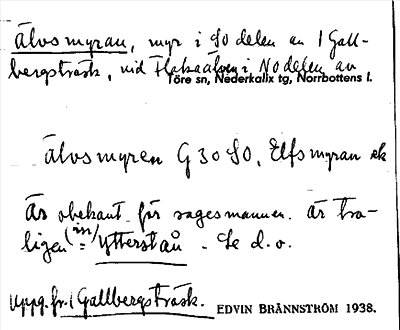 Älvsmyran, myr i SO delen av 1 Gall-
bergsträsk, vid Flakaälven i NO delen av
Töre sn, Nederkalix tg, Norrbottens l.
Älvsmyren G 30 SO, Elfsmyran ek
Är obekant för sagesmannen. Är tro-
ligen (in/ = Ytterstån - Se d. o.
Uppg. fr. 1 Gallbergsträsk.
EDVIN BRÄNNSTRÖM 1938.